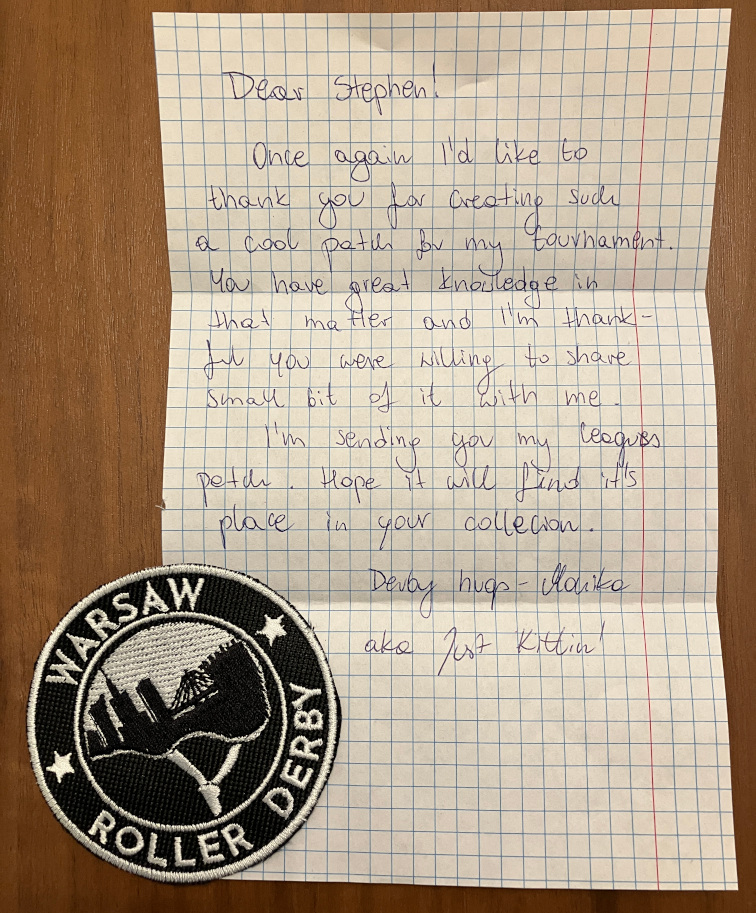 Dear Stephen!
Once again I'd like to
thank you for creating such
a cool patch for my tournament.
You have great knowledge in
that matter and I'm thank-
ful you were willing to share
small bit of it with me.
I'm sending you my leagues
patch. Hope it will find it's
place in your collecion.
Derby hugs - Monika
aka Just Kittin'
WARSAW
ROLLER DERBY